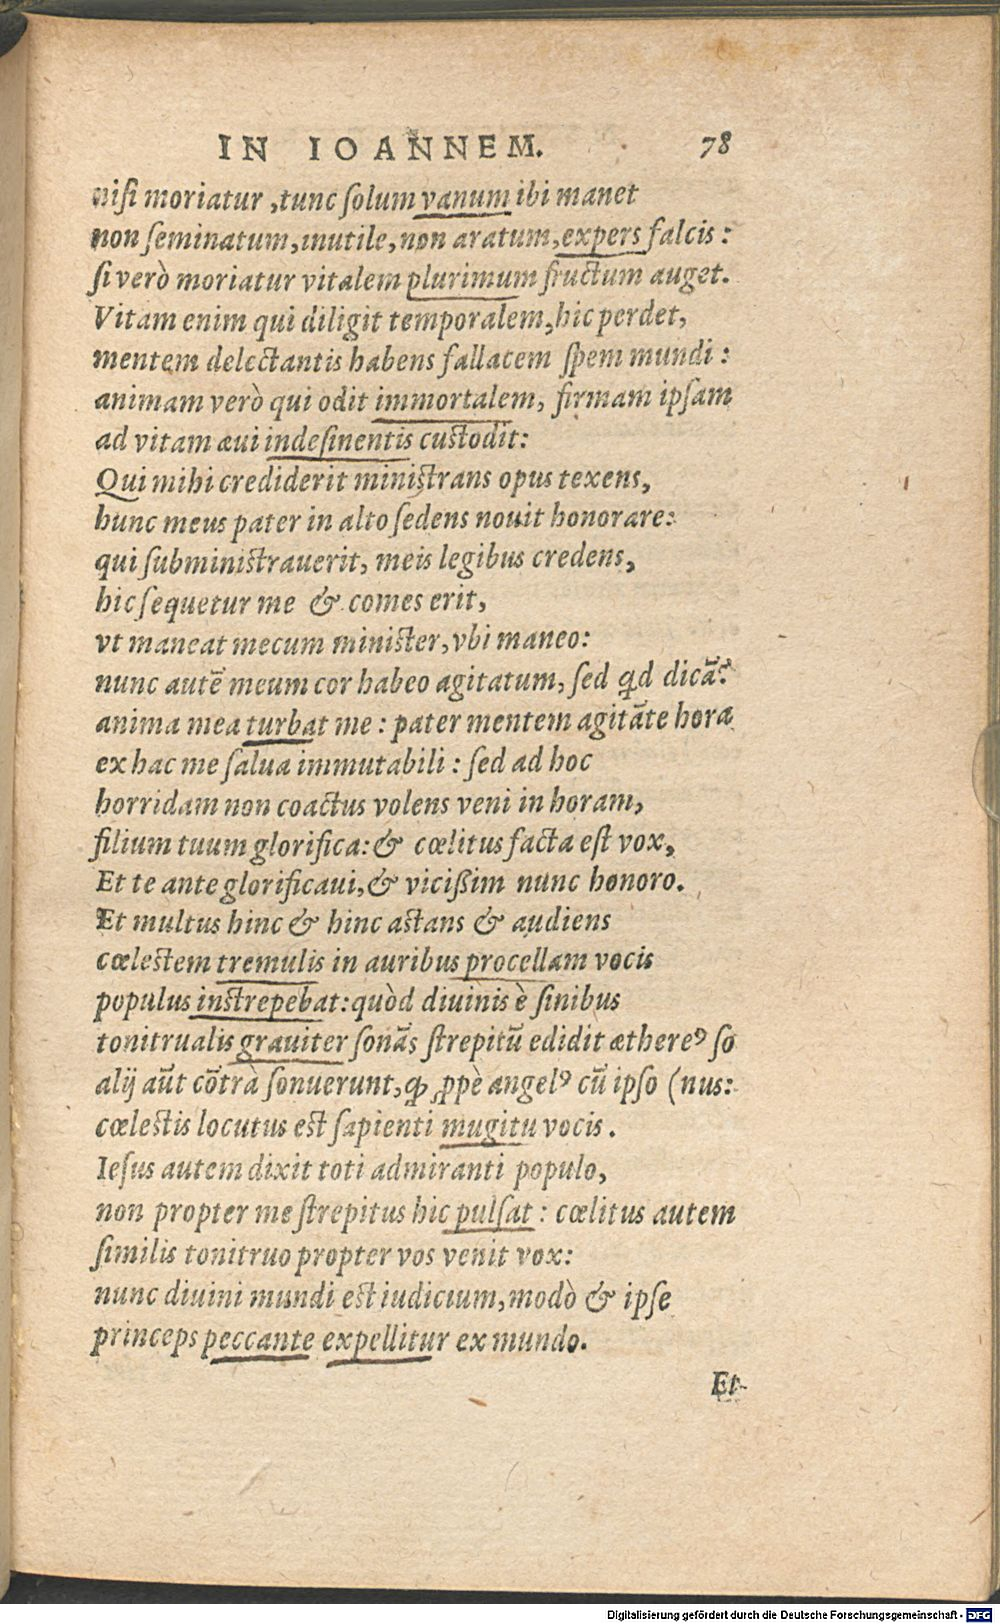 IN IOANNEM. 78
niſi moriatur, tunc ſolum vanum ibi manet
non ſeminatum, inutile, non aratum, expers falcis:
ſi verò moriatur vitalem plurimum fructum auget.
Vitam enim qui diligit temporalem, hic perdet,
mentem delectantis habens fallacem ſpem mundi:
animam verò qui odit immortalem, firmam ipſam
ad vitam æui indeſinentis cuſtodit:
Qui mihi crediderit miniſtrans opus texens,
hunc meus pater in alto ſedens nouit honorare:
qui ſubminiſtrauerit, meis legibus credens,
hic ſequetur me & comes erit,
vt maneat mecum miniſter, vbi maneo:
nunc autē meum cor habeo agitatum, ſed qd dicā?
anima mea turbat me: pater mentem agitāte hora
ex hac me ſalua immutabili: ſed ad hoc
horridam non coactus volens veni in horam,
filium tuum glorifica: & cœlitus facta eſt vox,
Et te ante glorificaui, & viciſsim nunc honoro.
Et multus hinc & hinc aſtans & audiens
cœleſtem tremulis in auribus procellam vocis
populus inſtrepebat: quòd diuinis è ſinibus
tonitrualis grauiter ſonās ſtrepitū edidit æthereꝰ ſo
alij aūt cōtrà ſonuerunt, ꝙ ꝓpè angelꝰ cū ipſo (nus:
cœleſtis locutus eſt ſapienti mugitu vocis.
Ieſus autem dixit toti admiranti populo,
non propter me ſtrepitus hic pulſat: cœlitus autem
ſimilis tonitruo propter vos venit vox:
nunc diuini mundi eſt iudicium, modò & ipſe
princeps peccante expellitur ex mundo.
Et
Digitalisierung gefördert durch die Deutsche Forschungsgemeinschaft - DFG